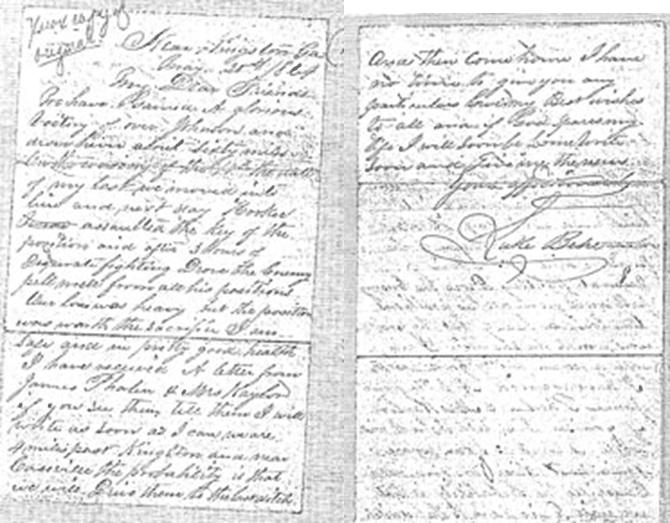 Xerox copy of
original
Near Kingston Ga
May 20th 1864
My Dear Friends
We have gained A glorious
victory over Johnson and
drove him about sixty miles
of my last we moved into
line and next day Hooker
assaulted the key of the
position and after 3 hours of
Desperate fighting Drove the Enemy
pell mell from all his positions
Our loss was heavy but the position
was worth the sacrifice I am
Safe and in pretty good health
I have received A letter from
James Thalen & Mrs Kaylor
if you see them tell them I will
write as soon as I can we are
4 miles past Kingston and near
Cassville the probability is that
we will Drive them to the last ditch
And then come home I have
no time to give you any
particulars Best wishes
to all and if God spares my
life I will soon be home write
soon and give me the news
Yours affectionately
Luke